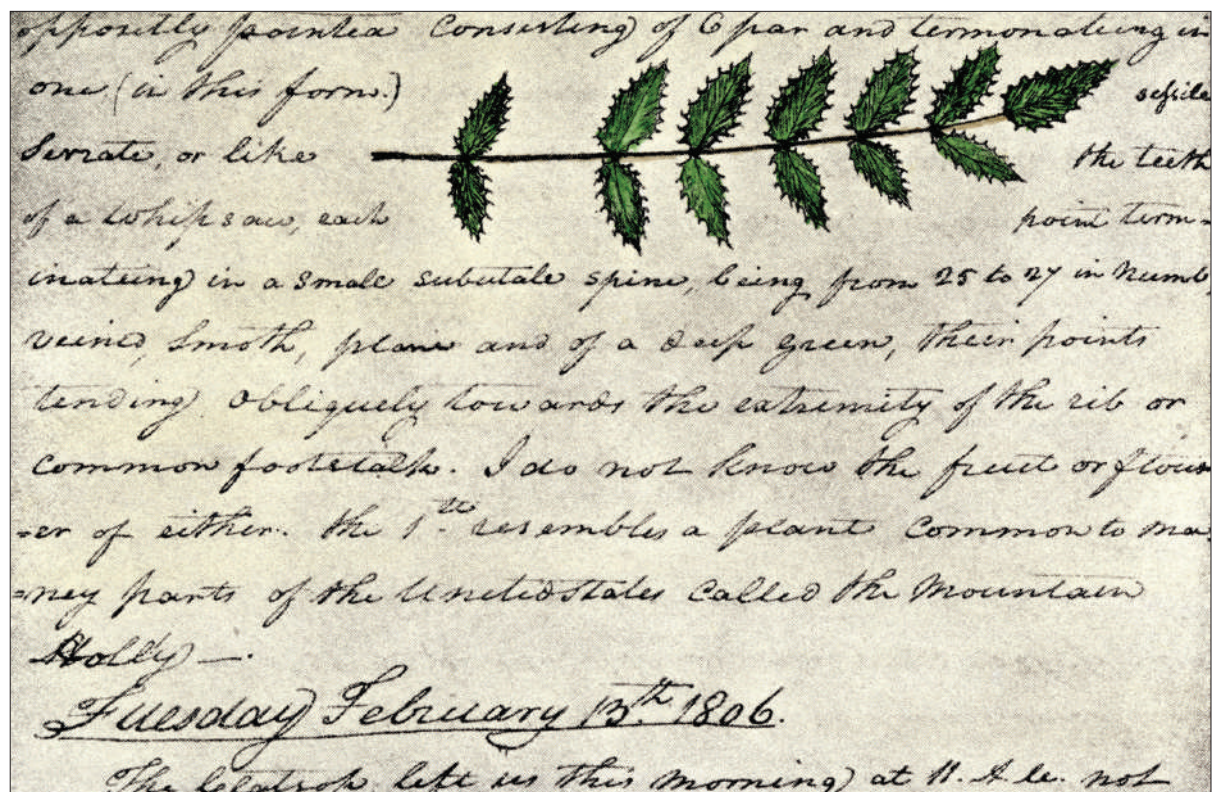 oppositly pointed consisting of 6 par and termonateing in
one (in this form.) sessile
Serrate, or like the teeth
of a whipsaw, each point term=
inateing in a small subulate spine, being from 25 to 27 in numb,
veined, smoth, plane and of a deep green, their points
tending obliquely towards the extremity of the rib or
common footstalk. I do not know the fruit or flow
=er of either. the 1st resembles a plant common to ma,
=ney parts of the Unitedstates called the Mountain
Holly —.
Tuesday February 13th 1806.
The Clatsop left us this morning at 11. A. M. not